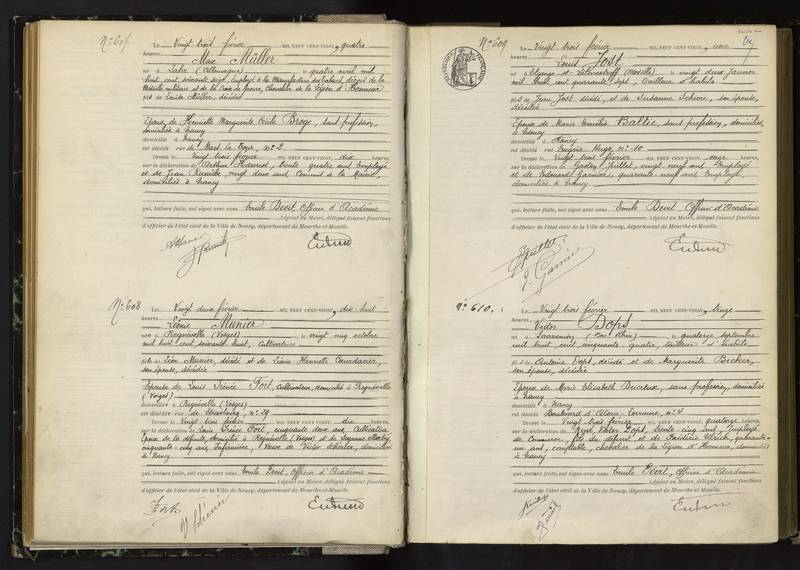 N° 607
Le Vingt trois février MIL NEUF CENT-VINGT, quatre
heures
Max Müller
né à Lahr (Allemagne) le quatre avril mil
huit cent soixante sept, employé à la Manufacture des tabacs, décoré de la
Médaille militaire et de la Croix de guerre, chevalier de la Légion d'Honneur
fils de Louise Müller, décédée
Epoux de Henriette Marguerite Cécile Broge, sans profession,
domiciliée à Nancy
domicilié à Nancy
est décédé rue de Mars-la-Tour, n° 2
Dressé le Vingt trois février MIL NEUF CENT-VINGT, dix heures,
sur la déclaration de Arthur Hanriot, trente quatre ans, Employé
et de Jean Renière vingt deux ans, Commis à la Mairie,
domiciliés à Nancy
qui, lecture faite, ont signé avec nous Emile Devit Officier d'Académie
Adjoint au Maire, délégué faisant fonctions
d'officier de l'état civil de la Ville de Nancy, département de Meurthe-et-Moselle.
N° 608
Le Vingt deux février MIL NEUF CENT-VINGT, dix huit
heures
Léonie Munier
née à Regnévelle (Vosges) le vingt cinq octobre
mil huit cent soixante huit, Cultivatrice
fille de Léon Munier, décédé et de Léonie Henriette
son épouse, décédée
Epouse de Louis Irénée Fort, Cultivateur, domicilié à Regnévelle
(Vosges)
domiciliée à Regnévelle (Vosges)
est décédée rue de Strasbourg, n° 29
Dressé le Vingt trois février MIL NEUF CENT-VINGT, dix heures,
sur la déclaration de Louis Irénée Fort, cinquante deux ans, Cultivateur
Epoux de la défunte, domicilié à Regnévelle (Vosges) et de Suzanne
cinquante-cinq ans, Infirmière, Veuve de Victor, domiciliée
à Nancy
qui, lecture faite, ont signé avec nous Emile Devit, Officier d'Académie
Adjoint au Maire, délégué faisant fonctions
d'officier de l'état civil de la Ville de Nancy, département de Meurthe-et-Moselle.
Fort
N° 609
Le Vingt trois février MIL NEUF CENT-VINGT, une
heures
Louis Jost
né à (Moselle) le vingt deux janvier
mil huit cent quarante sept, tailleur d'habits
fils de Jean Jost décédé, et de Susanne, son épouse,
décédée
Epoux de Marie Baltié, sans profession, domiciliée
à Nancy
domicilié à Nancy
est décédé rue Eugène Hugo, n° 10
Dressé le Vingt trois février MIL NEUF CENT-VINGT, onze heures,
sur la déclaration de vingt neuf ans, Employé
et de Edouard Garnier, quarante neuf ans Employé,
domiciliés à Nancy
qui, lecture faite, ont signé avec nous Emile Devit Officier d'Académie
Adjoint au Maire, délégué faisant fonctions
d'officier de l'état civil de la Ville de Nancy, département de Meurthe-et-Moselle.
E. Garnier
N° 610.
Le Vingt trois février MIL NEUF CENT-VINGT, treize
heures
Victor Dops
né à Saarunion (Bas Rhin) le quatorze septembre
mil huit cent cinquante quatre, tailleur d'habits
fils de Antoine Dops, décédé et de Marguerite Becker,
son épouse, décédée
Epoux de Marie Elisabeth, sans profession, domiciliée
à Nancy
domicilié à Nancy
est décédé Boulevard d'Alsace-Lorraine, n° 4
Dressé le Vingt-trois février MIL NEUF CENT-VINGT, quatorze heures,
sur la déclaration de Dops, trente cinq ans, Employé
de Commerce, fils du défunt et de Frédéric Ulrich, quarante-
un ans, comptable, chevalier de la Légion d'Honneur, domiciliés
à Nancy
qui, lecture faite, ont signé avec nous Emile Devit, Officier d'Académie
Adjoint au Maire, délégué faisant fonctions
d'officier de l'état civil de la Ville de Nancy, département de Meurthe-et-Moselle.